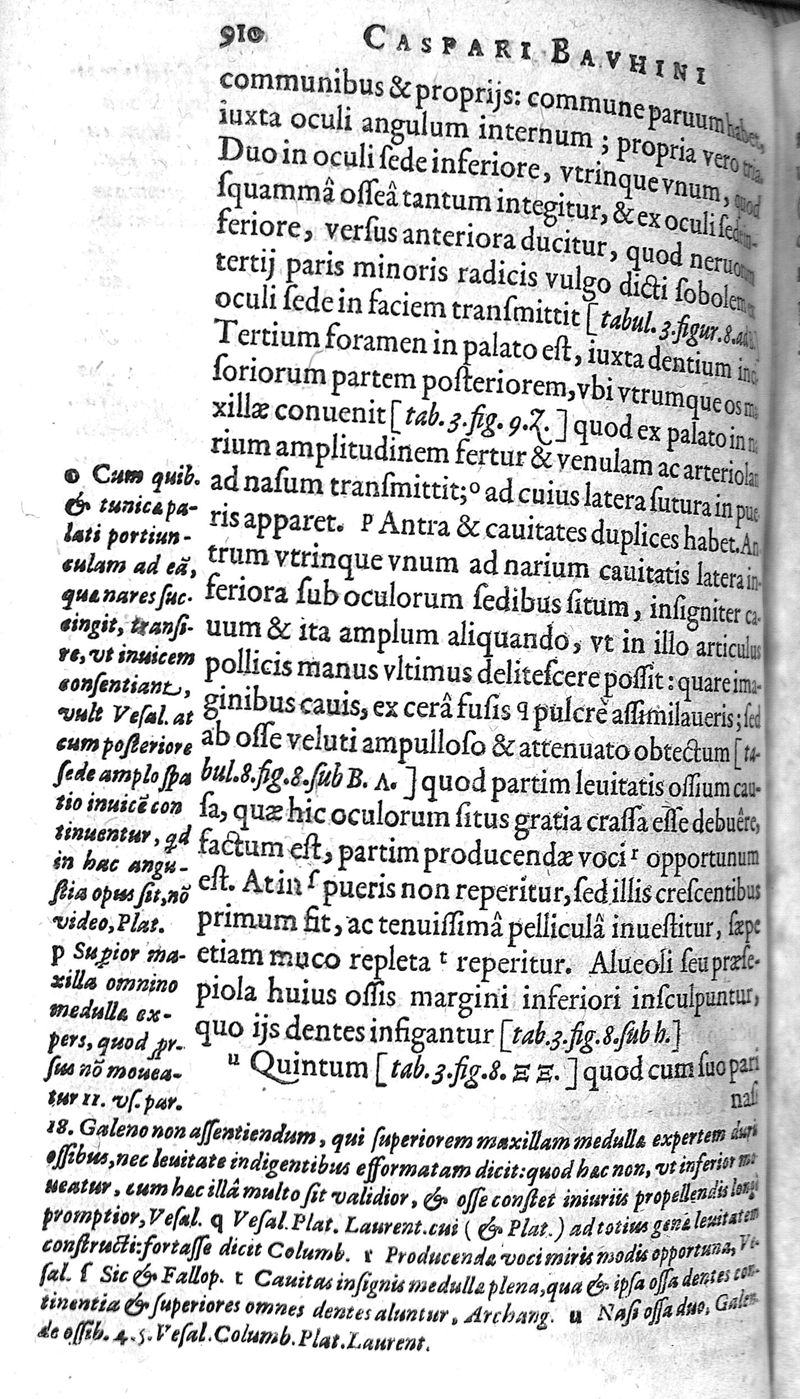 910 CASPARI BAVHINI
communibus & proprijs: commune paruum habet,
iuxta oculi angulum internum ; propria vero tria.
Duo in oculi ſede inferiore, vtrinque vnum, quod
ſquammâ oſſeâ tantum integitur, & ex oculi ſede in-
feriore, verſus anteriora ducitur, quod neruorum
tertij paris minoris radicis vulgo dicti ſobolem ex
oculi ſede in faciem tranſmittit [tabul. 3. figur. 8.
Tertium foramen in palato eſt, iuxta dentium inci
ſoriorum partem poſteriorem, vbi vtrumque os ma
xillæ conuenit [tab. 3. fig. 9. Z.] quod ex palato in na
rium amplitudinem fertur & venulam ac arteriolam
ad naſum tranſmittit; o ad cuius latera ſutura in pue
ris apparet. p Antra & cauitates duplices habet. An
trum vtrinque vnum ad narium cauitatis latera in-
feriora ſub oculorum ſedibus ſitum, inſigniter ca-
uum & ita amplum aliquando, vt in illo articulus
pollicis manus vltimus deliteſcere poſſit : quare ima-
ginibus cauis, ex cerâ fuſis q pulcrè aſſimilaueris; ſed
ab oſſe veluti ampulloſo & attenuato obtectum [ta-
bul. 8. fig. 8. ſub B. Λ.] quod partim leuitatis oſſium cau-
ſa, quæ hic oculorum ſitus gratia craſſa eſſe debuêre,
factum eſt, partim producendæ voci r opportunum
eſt. At in ſ pueris non reperitur, ſed illis creſcentibus
primum fit, ac tenuiſſimâ pelliculâ inueſtitur, ſæpe
etiam muco repleta t reperitur. Alueoli ſeu præſe-
piola huius oſſis margini inferiori inſculpuntur,
quo ijs dentes infigantur [tab. 3. fig. 8. ſub h.]
u Quintum [tab. 3. fig. 8. Ξ Ξ.] quod cum ſuo pari
naſi
o Cum quib.
& tunicæ pa-
lati portiun-
culam ad eā,
quæ nares ſuc-
cingit, tranſi-
re, vt inuicem
conſentiant,
vult Veſal. at
cum poſteriore
ſede amplo ſpa
tio inuicē con
tinuentur, qd
in hac angu-
ſtia opus ſit, nō
video, Plat.
p Supior ma-
xilla omnino
medullæ ex-
pers, quod pr-
ſus nō mouea-
tur 11. vſ. par.
18. Galeno non aſſentiendum, qui ſuperiorem maxillam medullæ expertem duris
oſſibus, nec leuitate indigentibus efformatam dicit: quod hæc non, vt inferior mo
ueatur, cum hæc illâ multo ſit validior, & oſſe conſtet iniuriis propellendis longè
promptior, Veſal. q Veſal. Plat. Laurent. cui (& Plat.) ad totius genæ leuitatem
conſtructi: fortaſſe dicit Columb. r Producendæ voci miris modis opportuna, Ve-
ſal. ſ Sic & Fallop. t Cauitas inſignis medulla plena, qua & ipſa oſſa dentes con-
tinentia & ſuperiores omnes dentes aluntur, Archang. u Naſi oſſa duo, Galen.
de oſſib. 4. 5. Veſal. Columb. Plat. Laurent.